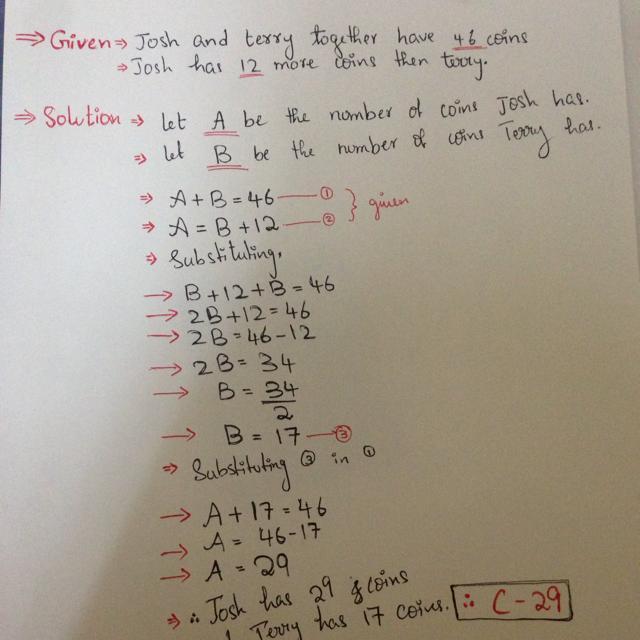 ⇒ Given ⇒ Josh and terry together have 46 coins
⇒ Josh has 12 more coins then terry.
⇒ Solution ⇒ let A be the number of coins Josh has.
⇒ let B be the number of coins Terry has.
⇒ A + B = 46 — ① } given
⇒ A = B + 12 — ②
⇒ Substituting,
→ B + 12 + B = 46
→ 2B + 12 = 46
→ 2B = 46 - 12
→ 2B = 34
→ B = 34/2
→ B = 17 — ③
⇒ Substituting ③ in ①
→ A + 17 = 46
→ A = 46 - 17
→ A = 29
⇒ ∴ Josh has 29 coins
Terry has 17 coins. ∴ C - 29